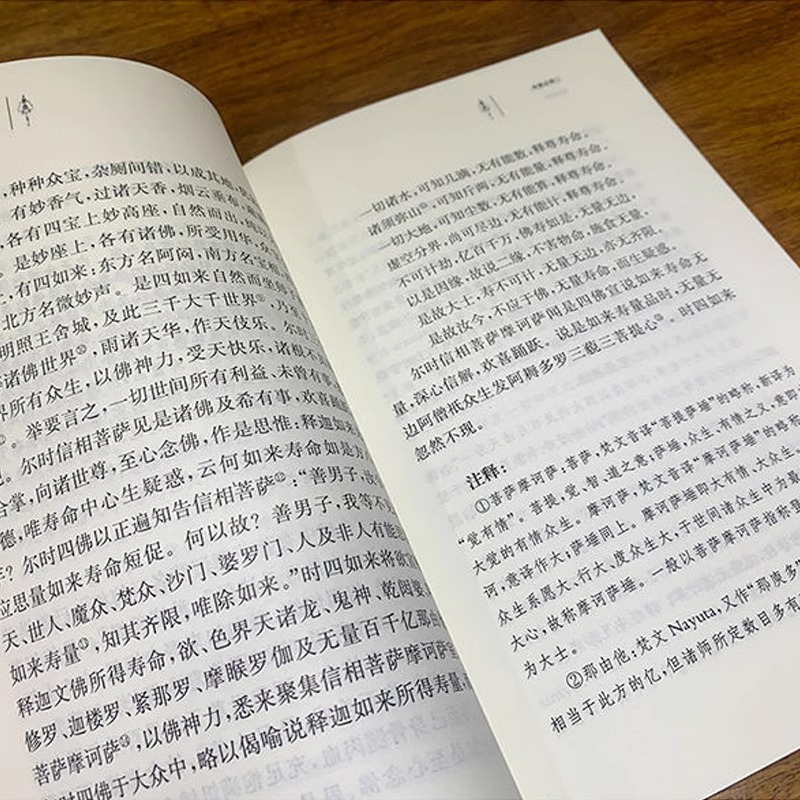 ，种种众宝，杂厕间错，以成其地，
有妙香气，过诸天香，烟云垂布，
各有四宝上妙高座，自然而出，
是妙座上，各有诸佛，所受用华，
有四如来：东方名阿閦，南方名宝相，
北方名微妙声。是四如来自然而坐师子
明照王舍城，及此三千大千世界，乃至
诸佛世界，雨诸天华，作天伎乐。尔时
界所有众生，以佛神力，受天快乐，诸根不
。举要言之，一切世间所有利益、未曾有事，
。尔时信相菩萨见是诸佛及希有事，欢喜踊
合掌，向诸世尊，至心念佛，作是思惟：释迦如来
德，唯寿命中心生疑惑，云何如来寿命如是方
？尔时四佛以正遍知告信相菩萨：“善男子，
应思量如来寿命短促。何以故？善男子，我等不
天、世人、魔众、梵众、沙门、婆罗门、人及非人有能思
如来寿量，知其齐限，唯除如来。”时四如来将欲宣
释迦文佛所得寿命，欲、色界天诸龙、鬼神、乾闼婆、
修罗、迦楼罗、紧那罗、摩睺罗伽及无量百千亿那由
菩萨摩诃萨，以佛神力，悉来聚集信相菩萨摩诃萨
时四佛于大众中，略以偈喻说释迦如来所得寿量，
一切诸水，可知几滴，无有能数，释尊寿命。
诸须弥山，可知斤两，无有能量，释尊寿命。
一切大地，可知尘数，无有能算，释尊寿命。
虚空分界，尚可尽边，无有能计，释尊寿命。
不可计劫，亿百千万，佛寿如是，无量无边。
以是因缘，故说二缘，不害物命，施食无量。
是故大士，寿不可计，无量无边，亦无齐限。
是故汝今，不应于佛，无量寿命，而生疑惑。
尔时信相菩萨摩诃萨闻是四佛宣说如来寿命无
量，深心信解，欢喜踊跃。说是如来寿量品时，无量无
边阿僧祇众生发阿耨多罗三藐三菩提心。时四如来
忽然不现。
注释：
①菩萨摩诃萨：菩萨，梵文音译“菩提萨埵”的略称，新译为
“觉有情”。菩提，觉、智、道之意；萨埵，众生、有情之义，意即
大觉的有情众生。摩诃萨，梵文音译“摩诃萨埵”的略称
河，意译作大；萨埵同上。摩诃萨埵即大有情、大众生。
众生系愿大、行大、度众生大，于世间诸众生中为最
大心，故称摩诃萨埵。一般以菩萨摩诃萨指称登
为大士。
②那由他：梵文Nayuta，又作“那庾多”
相当于此方的亿，但诸师所定数目多有